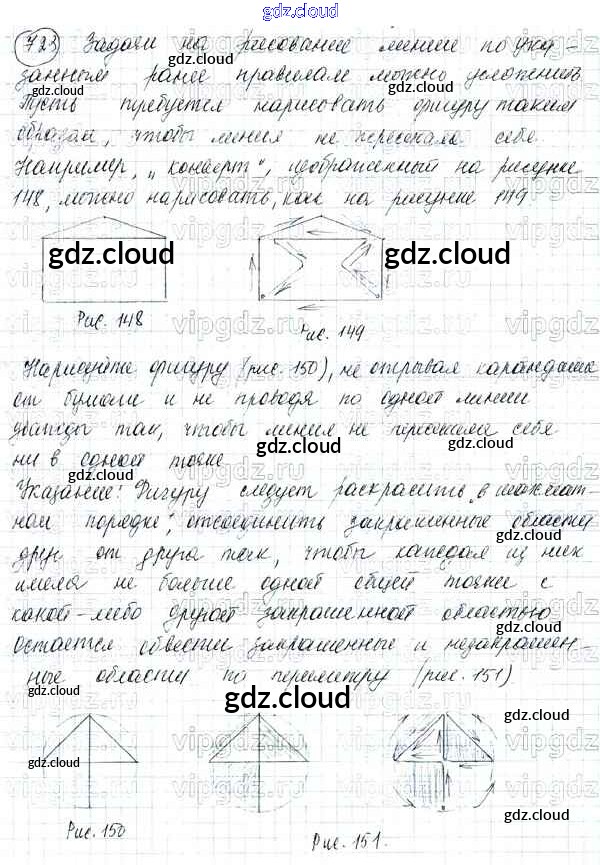 gdz.cloud
723 Задачи на рисование линие по ука-
занным ранее правилам можно усложнить
Пусть требуется нарисовать фигуру таким
образом, чтобы линия не пересекала себе
Например, „конверт", изображенный на рисунке
148, можно нарисовать, как на рисунке 149
gdz.cloud gdz.cloud
Рис. 148 Рис. 149
Нарисуйте фигуру (рис. 150), не отрывая карандаша
от бумаги и не проводя по одной линии
дважды так, чтобы линия не пересекала себе
ни в одной точке
Указание: Фигуру следует раскрасить „в шахмат-
ном порядке", отсоединить закрашенные области
друг от друга так, чтобы каждая из них
имела не больше одной общей точке с
какой-либо другой закрашенной областью
Остается обвести закрашенные и незакрашен-
ные области по периметру (рис. 151)
gdz.cloud gdz.cloud gdz.cloud
Рис. 150 Рис. 151.